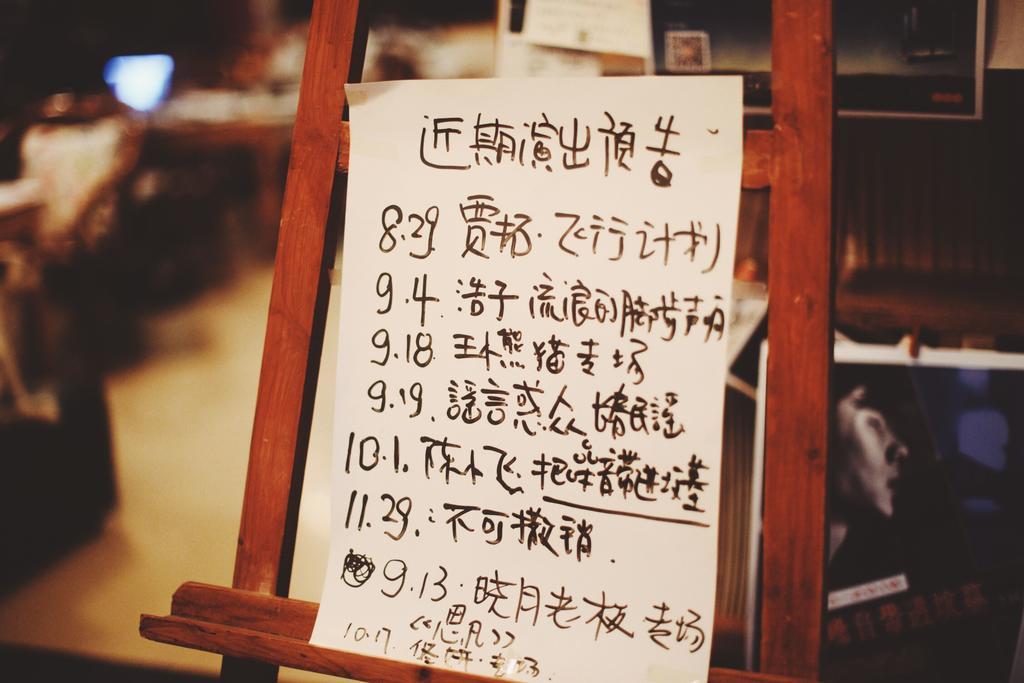 近期演出預告
8.29 贾拓·飞行计划
9.4. 浩子 流浪的脚背声明
9.18 王小熊猫专场
9.19. 謠言惑众 民謠
10.1. 陈小飞·把噪音带进坟墓
11.29.:不可撤销.
9.13·晓月老板专场
10.17. 《思凡》
专场.